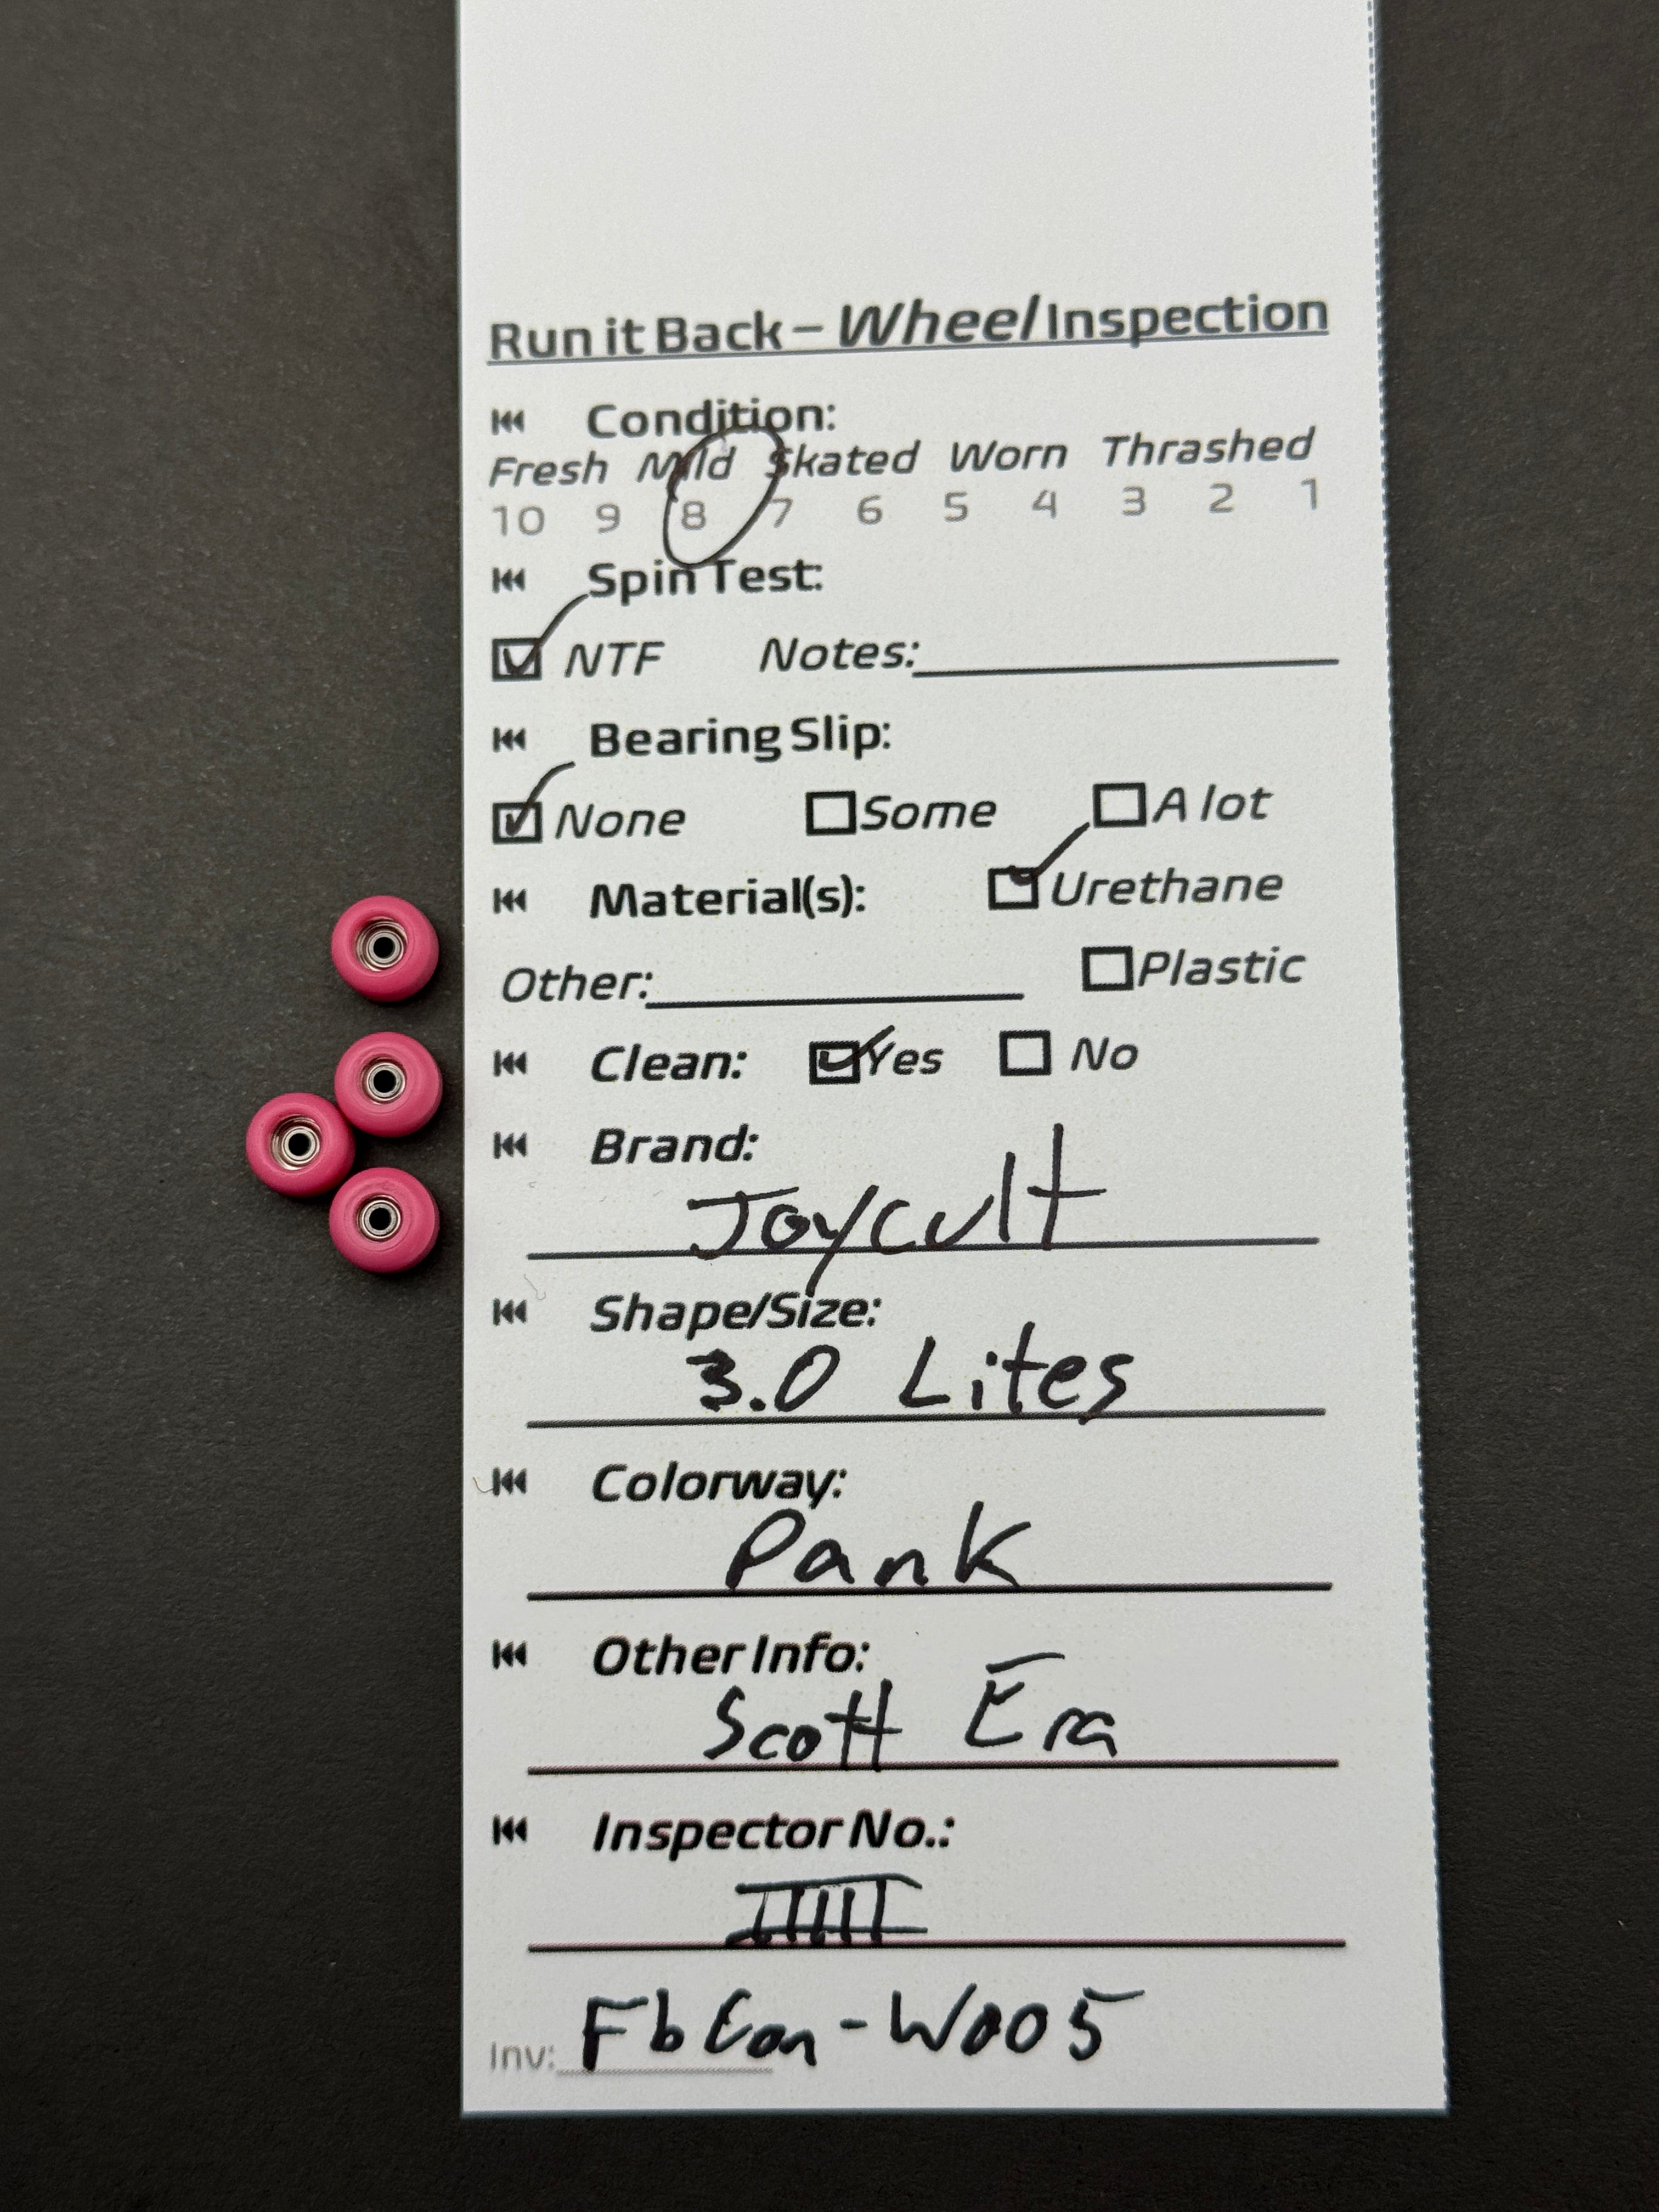 Run it Back – Wheel Inspection
Condition:
Fresh Mild Skated Worn Thrashed
10 9 8 7 6 5 4 3 2 1
Spin Test:
NTF Notes:
Bearing Slip:
None Some A lot
Material(s): Urethane
Other: Plastic
Clean: Yes No
Brand:
Joycult
Shape/Size:
3.0 Lites
Colorway:
Pank
Other Info:
Scott Era
Inspector No.:
Inv: FbCon-W005